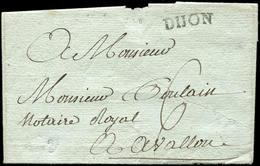 DIJON
A Monsieur
Monsieur Poulain
Notaire Royal
A Avallon